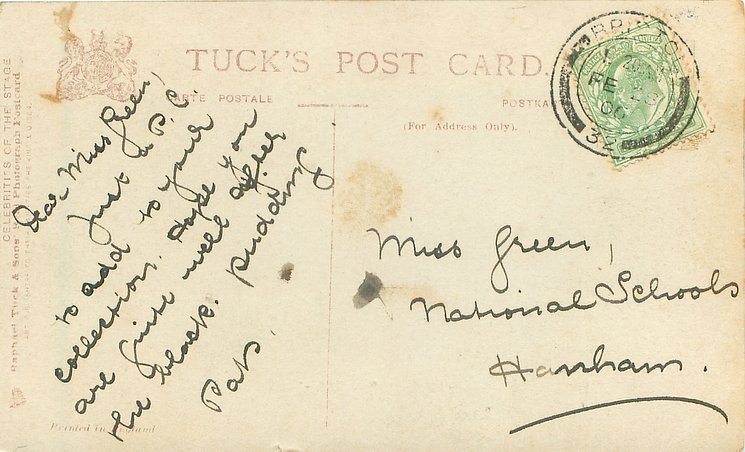 TUCK'S POST CARD.
CARTE POSTALE
POSTKA
(For Address Only).
CELEBRITIES OF THE STAGE
Raphael Tuck & Sons Photograph Postcard
Dear Miss Green,
Just a P.C.
to add to your
collection. Hope you
are quite well after
the black pudding
Pats.
BRISTOL
FE 23
06
32
Miss Green,
National Schools
Hanham.
Printed in England